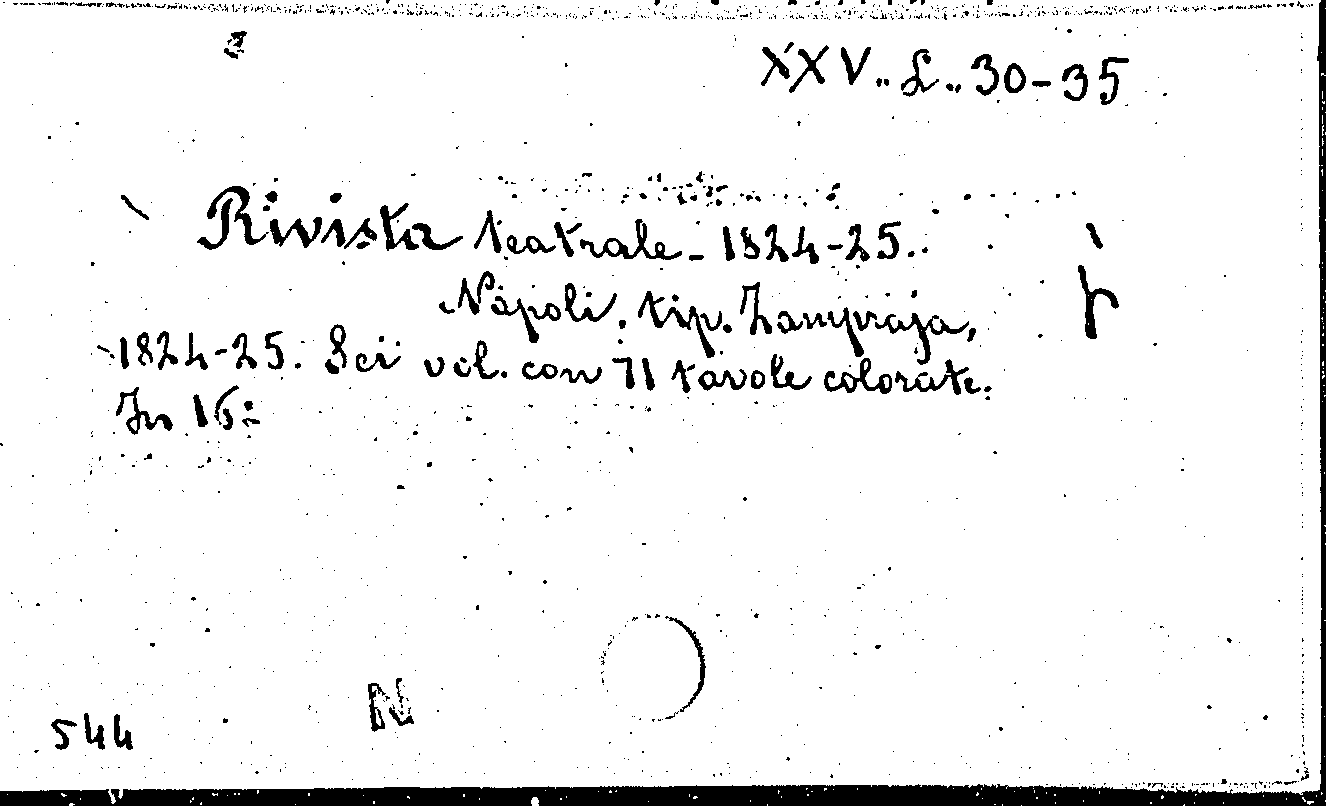 XXV.. L.. 30-35
Rivista teatrale - 1824-25.
Napoli, tip. Zampraja,
1824-25. Sei vol. con 71 tavole colorate.
In 16:
N
544